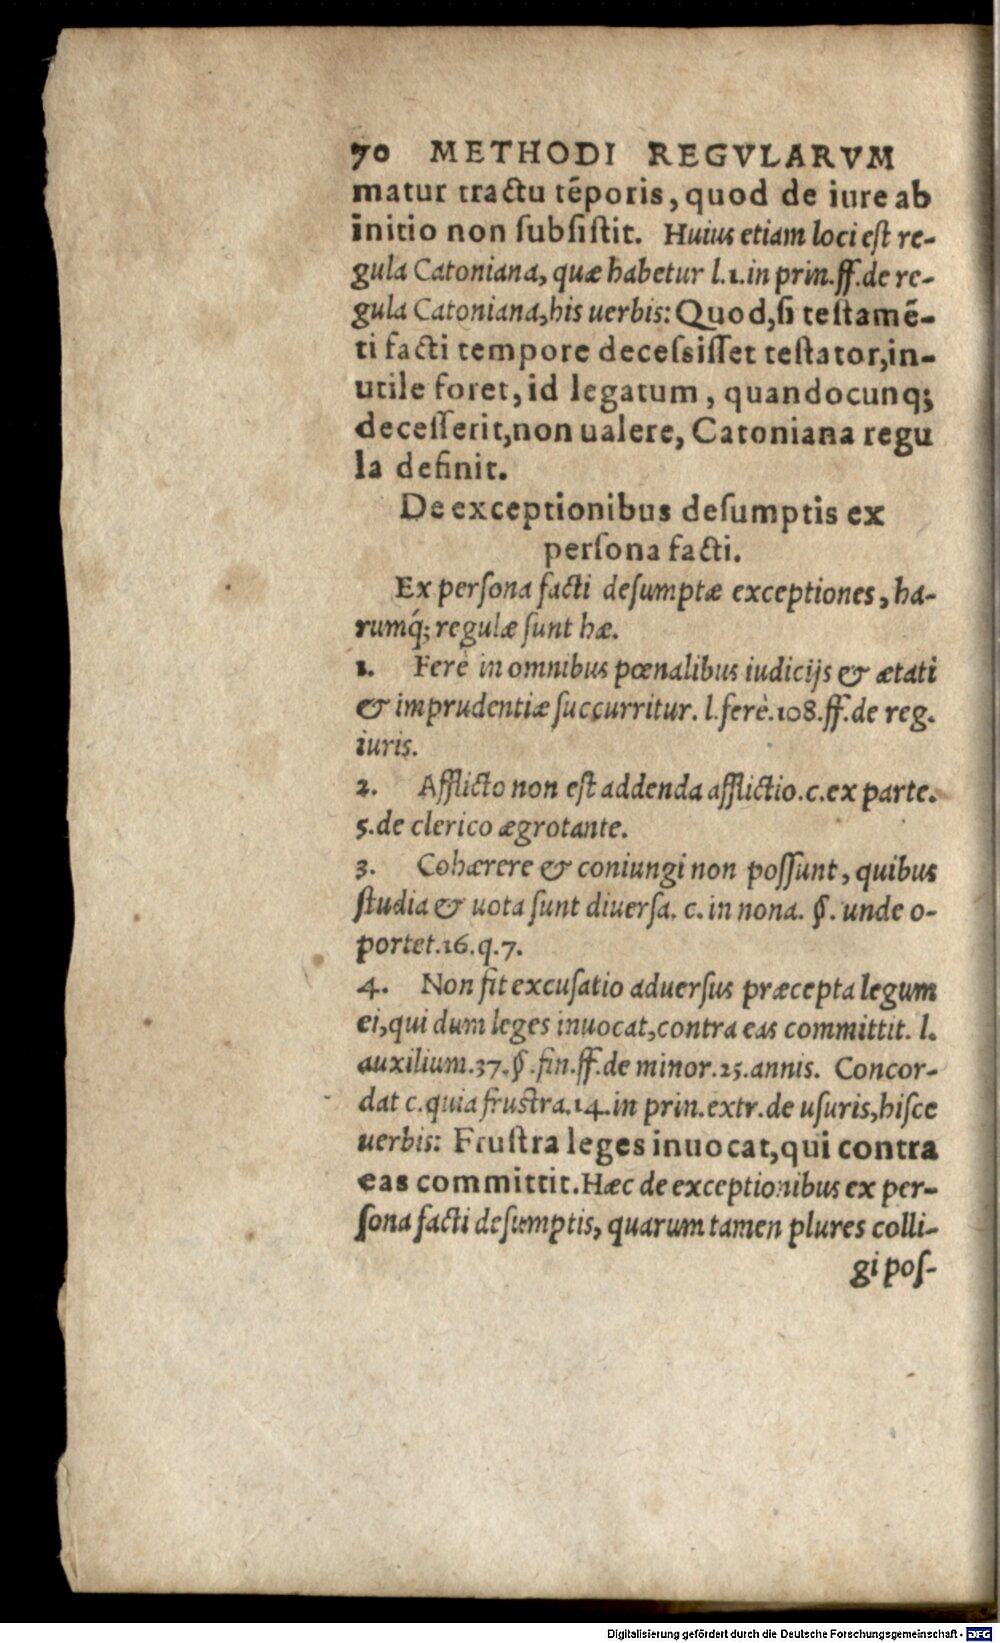 70 METHODI REGVLARVM
matur tractu tẽporis, quod de iure ab
initio non ſubſiſtit. Huius etiam loci eſt re-
gula Catoniana, quæ habetur l.1.in prin.ff.de re-
gula Catoniana,his uerbis: Quod,ſi teſtamẽ-
ti facti tempore deceſsiſſet teſtator,in-
utile foret, id legatum, quandocunq;
deceſſerit,non ualere, Catoniana regu
la definit.
De exceptionibus deſumptis ex
perſona facti.
Ex perſona facti deſumptæ exceptiones, ha-
rumq́; regulæ ſunt hæ.
1. Ferè in omnibus pœnalibus iudicijs & ætati
& imprudentiæ ſuccurritur. l.ferè.108.ff.de reg.
iuris.
2. Afflicto non eſt addenda afflictio.c.ex parte.
5.de clerico ægrotante.
3. Cohærere & coniungi non poſſunt, quibus
ſtudia & uota ſunt diuerſa. c. in nona. §. unde o-
portet.16.q.7.
4. Non fit excuſatio aduerſus præcepta legum
ei,qui dum leges inuocat,contra eas committit. l.
auxilium.37.§.fin.ff.de minor.25.annis. Concor-
dat c.quia fruſtra.14.in prin.extr.de uſuris,hiſce
uerbis: Fruſtra leges inuocat,qui contra
eas committit.Hæc de exceptionibus ex per-
ſona facti deſumptis, quarum tamen plures colli-
gi poſ-
Digitalisierung gefördert durch die Deutsche Forschungsgemeinschaft - DFG